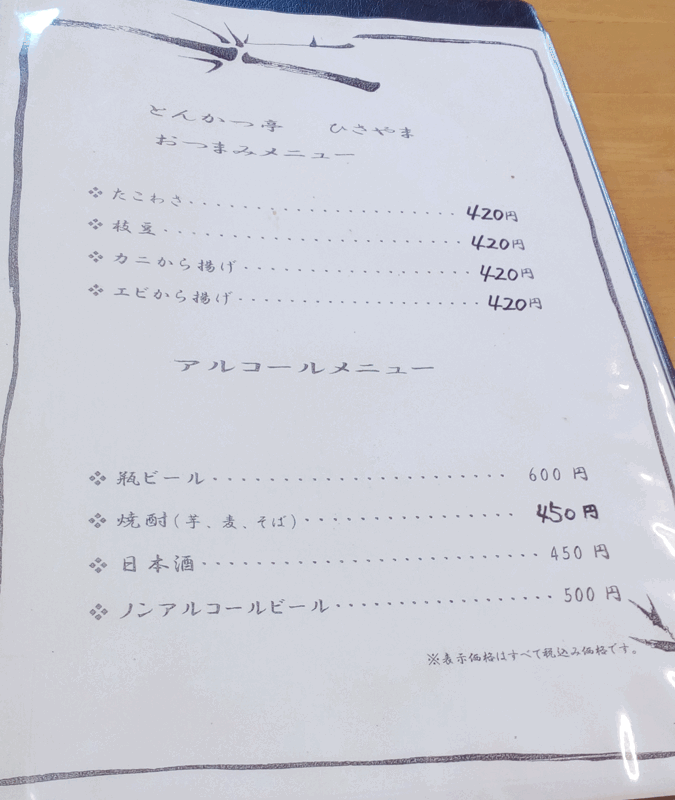 とんかつ亭　ひさやま
おつまみメニュー
❖ たこわさ・・・・・・・・・・・・・・・・・・・・・・・ 420円
❖ 枝豆・・・・・・・・・・・・・・・・・・・・・・・・・ 420円
❖ カニから揚げ・・・・・・・・・・・・・・・・・・・ 420円
❖ エビから揚げ・・・・・・・・・・・・・・・・・・・ 420円
アルコールメニュー
❖ 瓶ビール・・・・・・・・・・・・・・・・・・・・・・ 600 円
❖ 焼酎(芋、麦、そば)・・・・・・・・・・・・・・・ 450円
❖ 日本酒・・・・・・・・・・・・・・・・・・・・・・・・ 450 円
❖ ノンアルコールビール・・・・・・・・・・・・・・・ 500 円
※表示価格はすべて税込み価格です。